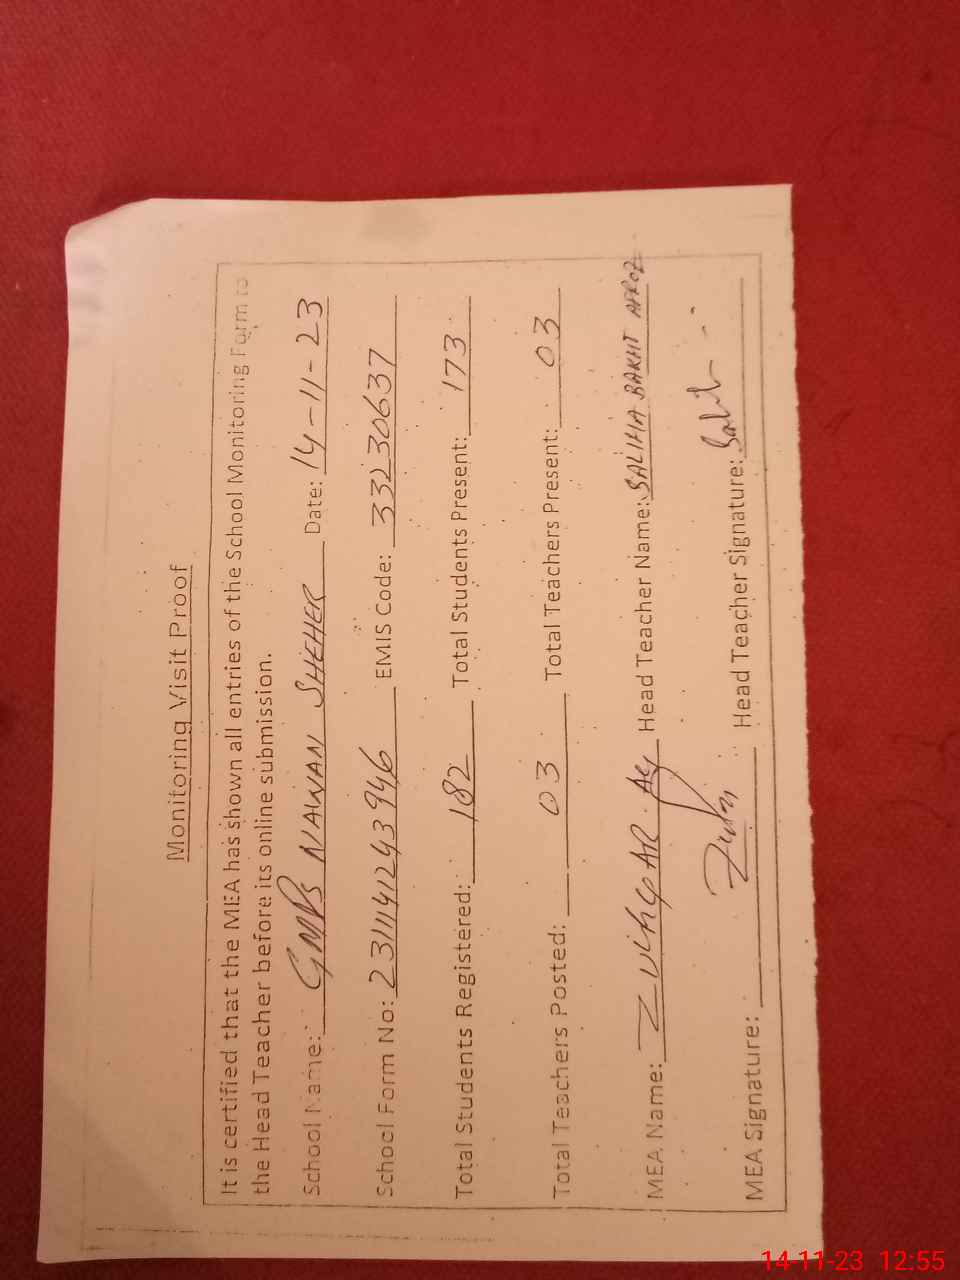 Monitoring Visit Proof
It is certified that the MEA has shown all entries of the School Monitoring Form to
the Head Teacher before its online submission.
School Name: GMPS NAWAN SHEHER Date: 14-11-23
School Form No: 2311141243946 EMIS Code: 33230637
Total Students Registered: 182 Total Students Present: 173
Total Teachers Posted: 03 Total Teachers Present: 03
MEA Name: ZULFIQAR Ali Head Teacher Name: SALIHA BAKHT AFROZ
MEA Signature: Head Teacher Signature:
14-11-23 12:55